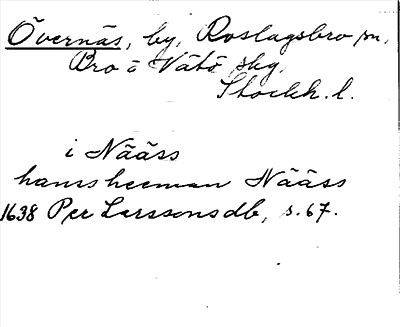 Övernäs, by, Roslagsbro sn,
Bro o Vätö skg.
Stockh. l.
i Nääss
hans herman Nääss
1638 Per Larssons db, s. 67.